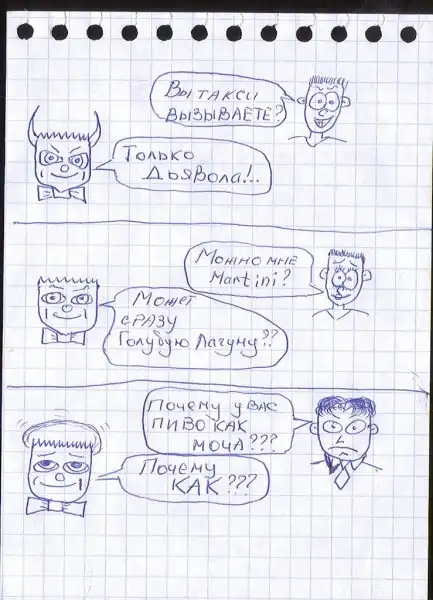 Вы такси
вызываете?
Только
Дьявола!..
Можно мне
Martini?
Может
сразу
Голубую Лагуну??
Почему у вас
пиво как
моча???
Почему
КАК???